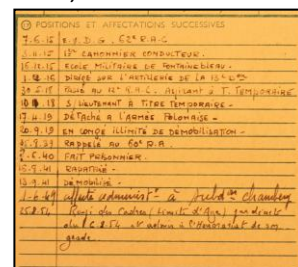 POSITIONS ET AFFECTATIONS SUCCESSIVES
7.6.15 62e R.A.C
2e CANONNIER CONDUCTEUR.
15.11.15 ECOLE MILITAIRE DE FONTAINEBLEAU.
DIRIGÉ SUR L'ARTILLERIE DE LA 13e
30.5.18 PASSÉ AU R.A.C. ASPIRANT À T. TEMPORAIRE
S/LIEUTENANT À TITRE TEMPORAIRE.
17.4.19 DÉTACHÉ À L'ARMÉE POLONAISE.
20.9.19 EN CONGÉ ILLIMITÉ DE DÉMOBILISATION.
.39 RAPPELÉ AU 60e R.A.
.6.40 FAIT PRISONNIER.
15.8.41 RAPATRIÉ.
13.9.41 DÉMOBILISÉ
affecté administrt à Subdon Chambéry
25.8.54 Rayé des Cadres (limite d'Age)
du 1.6.54 et admis à l'Honorariat de son
grade.